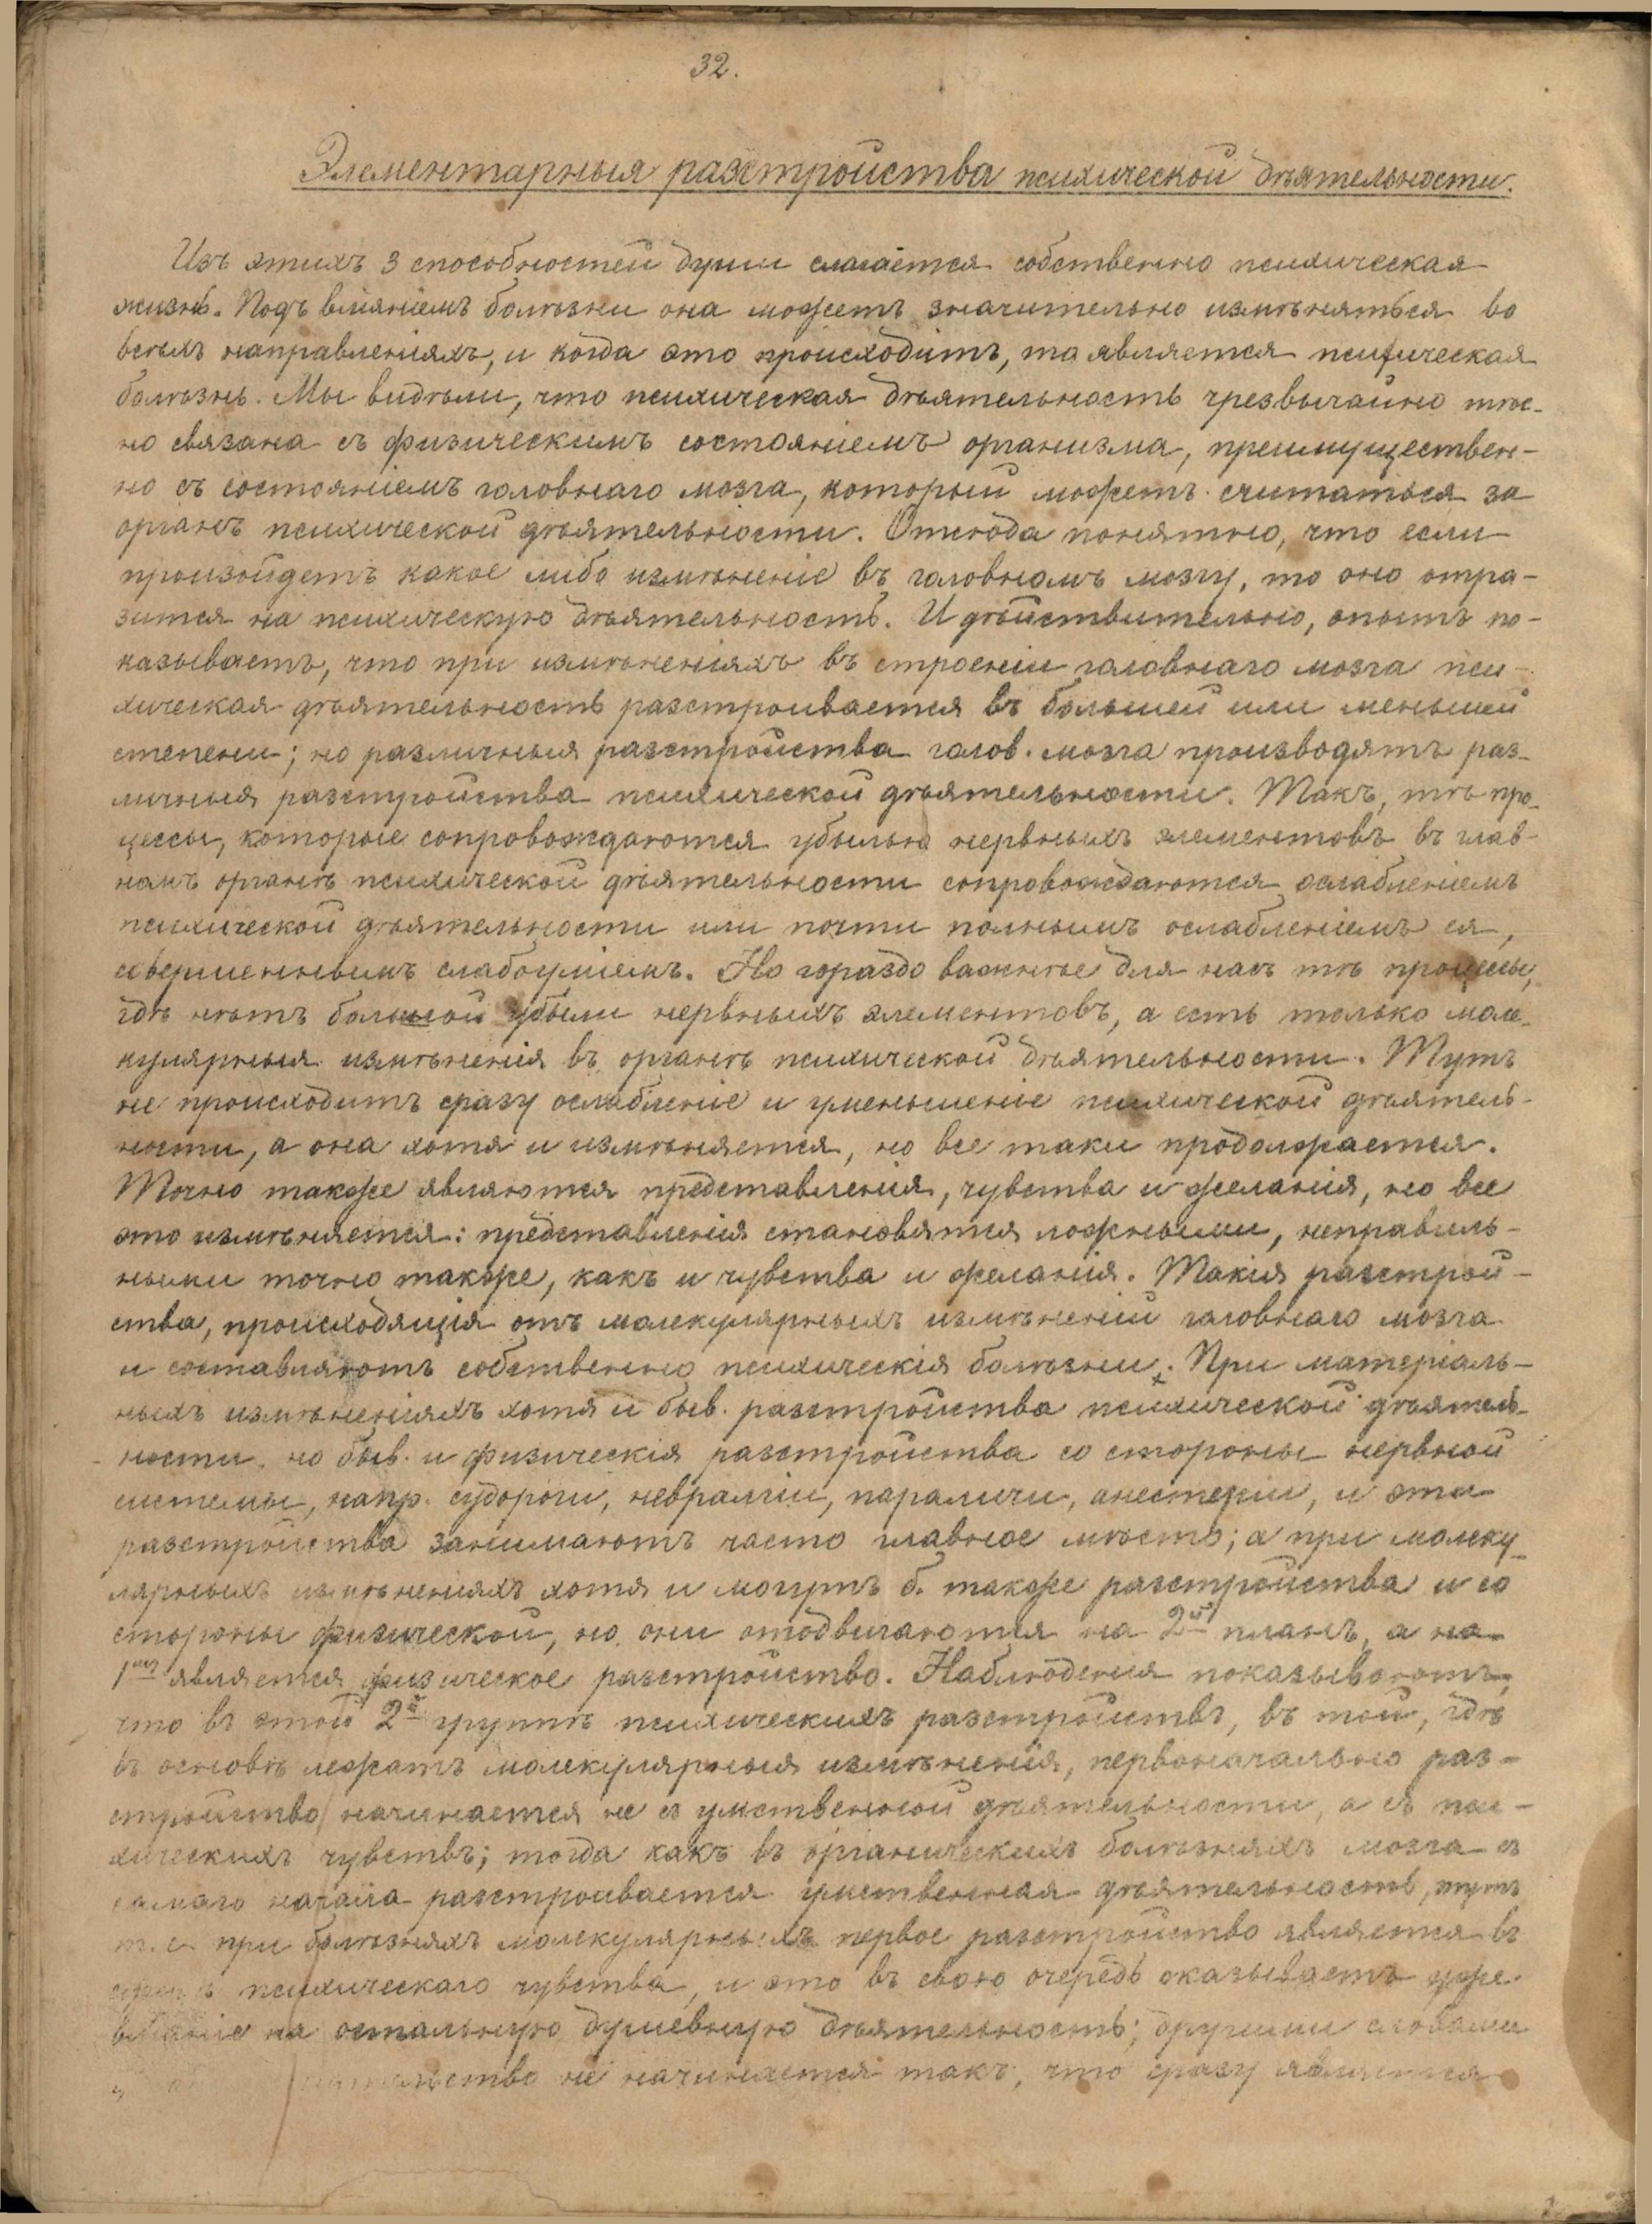 32.
Элементарныя разстройства психической дѣятельности.
Изъ этихъ 3 способностей души слагается собственно психическая
жизнь. Подъ вліяніемъ болѣзни она можетъ значительно измѣняться во
всѣхъ направленіяхъ, и когда это происходитъ, то является психическая
болѣзнь. Мы видѣли, что психическая дѣятельность чрезвычайно тѣс-
но связана съ физическимъ состояніемъ организма, преимуществен-
но съ состояніемъ головнаго мозга, который можетъ считаться за
органъ психической дѣятельности. Отсюда понятно, что если
произойдетъ какое либо измѣненіе въ головномъ мозгу, то оно отра-
зится на психическую дѣятельность. И дѣйствительно, опытъ по-
казываетъ, что при измѣненіяхъ въ строеніи головнаго мозга пси-
хическая дѣятельность разстроивается въ большей или меньшей
степени; но различныя разстройства голов. мозга производятъ раз-
личныя разстройства психической дѣятельности. Такъ, тѣ про-
цессы, которые сопровождаются убылью нервныхъ элементовъ въ глав-
номъ органѣ психической дѣятельности сопровождаются ослабленіемъ
психической дѣятельности или почти полнымъ ослабленіемъ ея,
совершеннымъ слабоуміемъ. Но гораздо важнѣе для насъ тѣ процессы,
гдѣ нѣтъ большой убыли нервныхъ элементовъ, а есть только моле-
кулярныя измѣненія въ органѣ психической дѣятельности. Тутъ
не происходитъ сразу ослабленіе и уменьшеніе психической дѣятель-
ности, а она хотя и измѣняется, но все таки продолжается.
Точно также являются представленія, чувства и желанія, но все
это измѣняется: представленія становятся ложными, неправиль-
ными точно также, какъ и чувства и желанія. Такія разстрой-
ства, происходящія отъ молекулярныхъ измѣненій головнаго мозга
и составляютъ собственно психическія болѣзни. При матеріаль-
ныхъ измѣненіяхъ хотя и быв. разстройства психической дѣятель-
ности, но быв. и физическія разстройства со стороны нервной
системы, напр. судороги, невралгіи, параличи, анестезіи, и эти
разстройства занимаютъ часто главное мѣсто; а при молеку-
лярныхъ измѣненіяхъ хотя и могутъ б. также разстройства и со
стороны физической, но они отодвигаются на 2й планъ, а на
1мъ является физическое разстройство. Наблюденія показываютъ,
что въ этой 2й группѣ психическихъ разстройствъ, въ той, гдѣ
въ основѣ лежатъ молекулярныя измѣненія, первоначально раз-
стройство начинается не съ умственной дѣятельности, а съ пси-
хическихъ чувствъ; тогда какъ въ органическихъ болѣзняхъ мозга съ
самаго начала разстроивается умственная дѣятельность, тутъ
т. е. при болѣзняхъ молекулярныхъ первое разстройство является въ
сферѣ психическаго чувства, и это въ свою очередь оказываетъ уже
вліяніе на остальную душевную дѣятельность; другими словами
не начинается такъ, что сразу является